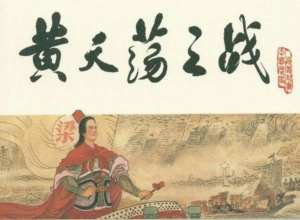 黄天荡之战
梁